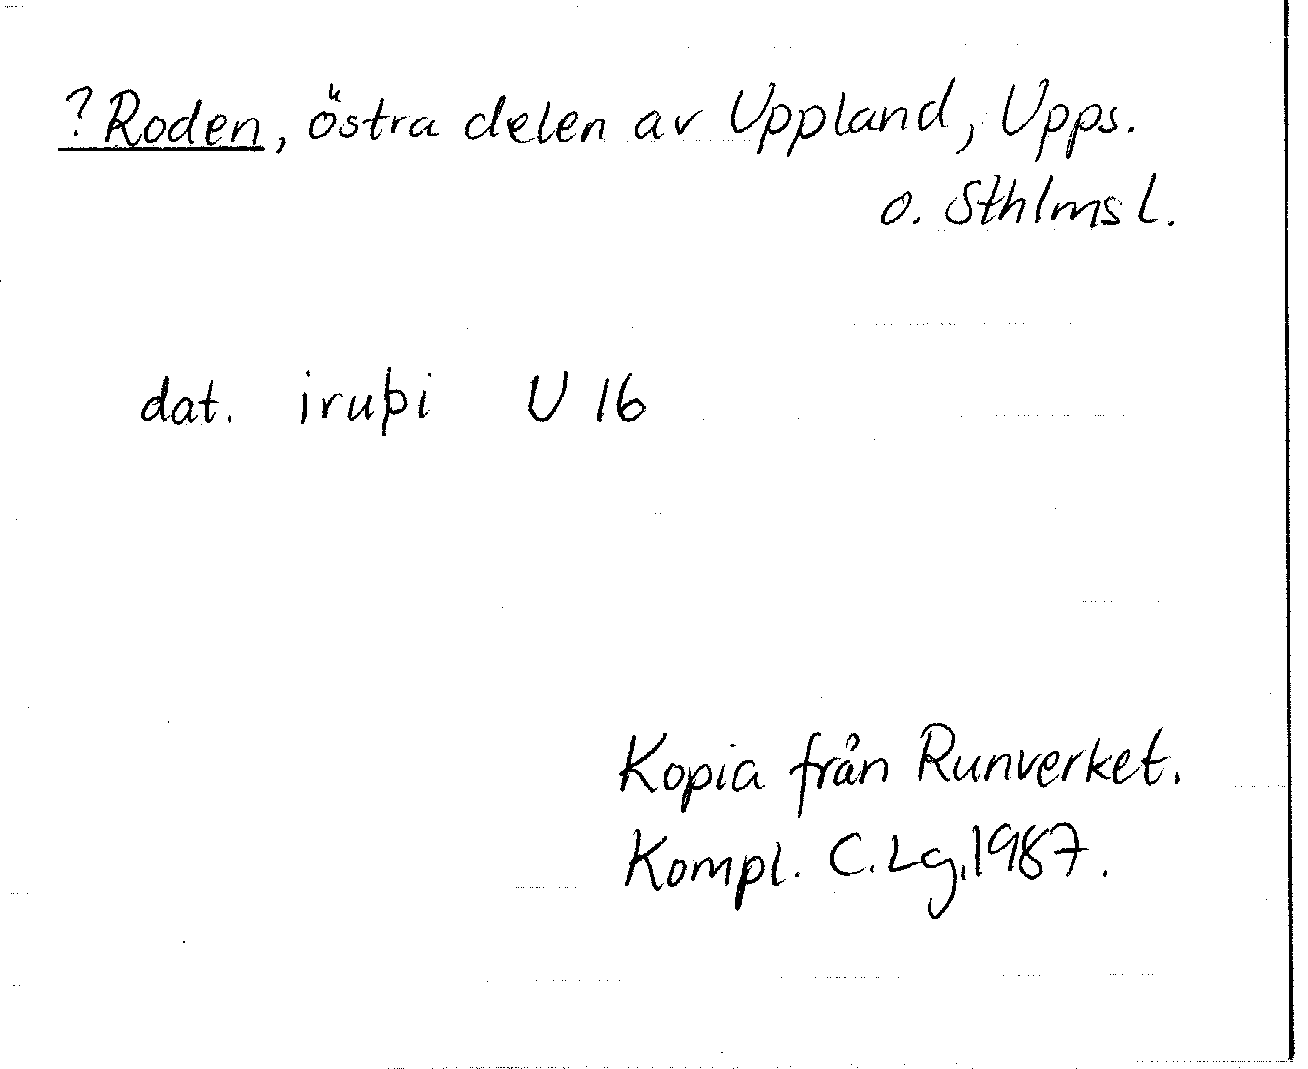 ?Roden, östra delen av Uppland, Upps.
o. Sthlms l.
dat. iruþi U 16
Kopia från Runverket.
Kompl. C.Lg.1987.